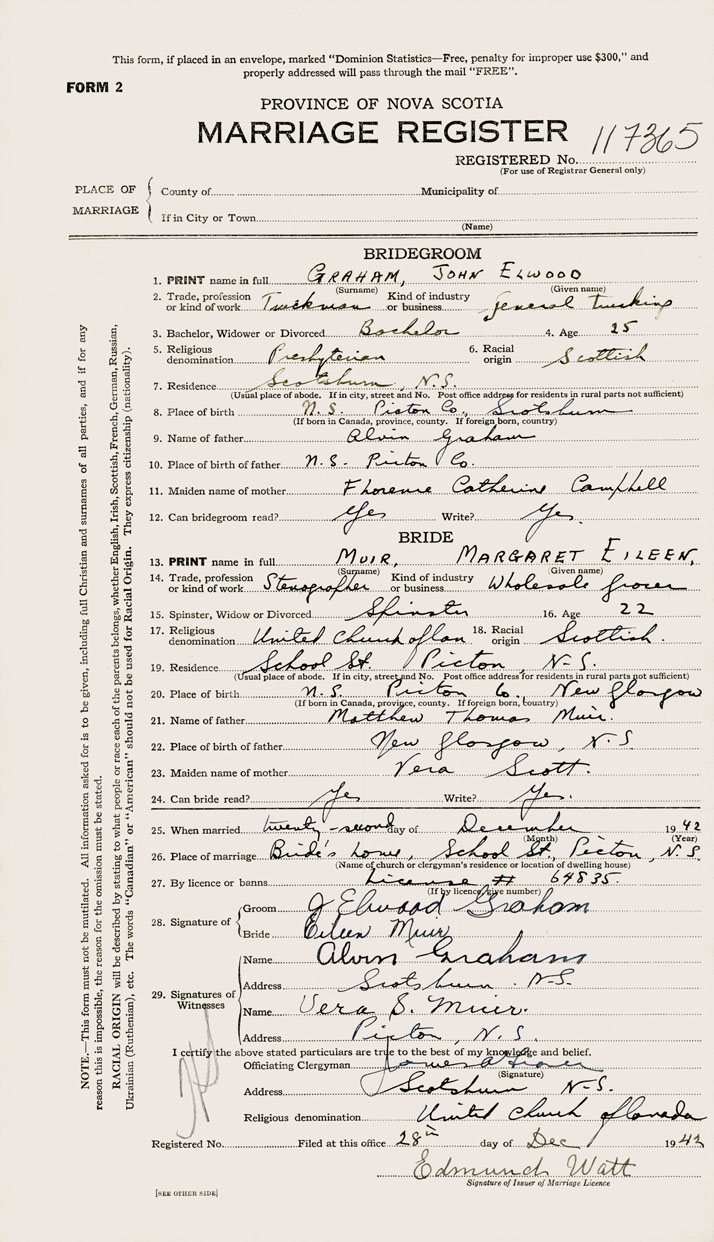 This form, if placed in an envelope, marked "Dominion Statistics—Free, penalty for improper use $300," and
properly addressed will pass through the mail "FREE".
FORM 2
PROVINCE OF NOVA SCOTIA
MARRIAGE REGISTER
117365
REGISTERED No.
(For use of Registrar General only)
PLACE OF MARRIAGE
County of Municipality of
If in City or Town
(Name)
NOTE.—This form must not be mutilated. All information asked for is to be given, including full Christian and surnames of all parties, and if for any
reason this is impossible, the reason for the omission must be stated.
RACIAL ORIGIN will be described by stating to what people or race each of the parents belongs, whether English, Irish, Scottish, French, German, Russian,
Ukrainian (Ruthenian), etc. The words "Canadian" or "American" should not be used for Racial Origin. They express citizenship (nationality).
BRIDEGROOM
1. PRINT name in full GRAHAM, JOHN ELWOOD
(Surname) (Given name)
2. Trade, profession or kind of work Truckman Kind of industry or business General trucking
3. Bachelor, Widower or Divorced Bachelor 4. Age 25
5. Religious denomination Presbyterian 6. Racial origin Scottish
7. Residence Scotsburn, N.S.
(Usual place of abode. If in city, street and No. Post office address for residents in rural parts not sufficient)
8. Place of birth N.S. Pictou Co., Scotsburn
(If born in Canada, province, county. If foreign born, country)
9. Name of father Alvin Graham
10. Place of birth of father N.S. Pictou Co.
11. Maiden name of mother Florence Catherine Campbell
12. Can bridegroom read? Yes Write? Yes.
BRIDE
13. PRINT name in full MUIR, MARGARET EILEEN,
(Surname) (Given name)
14. Trade, profession or kind of work Stenographer Kind of industry or business Wholesale grocer
15. Spinster, Widow or Divorced Spinster 16. Age 22
17. Religious denomination United Church of Can 18. Racial origin Scottish.
19. Residence School St. Pictou, N-S.
(Usual place of abode. If in city, street and No. Post office address for residents in rural parts not sufficient)
20. Place of birth N.S. Pictou Co. New Glasgow
(If born in Canada, province, county. If foreign born, country)
21. Name of father Matthew Thomas Muir.
22. Place of birth of father New Glasgow, N.S
23. Maiden name of mother Vera Scott.
24. Can bride read? Yes Write? Yes.
25. When married twenty-second day of December 1942
(Month) (Year)
26. Place of marriage Bride's home, School St., Pictou, N.S.
(Name of church or clergyman's residence or location of dwelling house)
27. By licence or banns License # 64835.
(If by licence, give number)
28. Signature of Groom J Elwood Graham
Bride Eileen Muir
29. Signatures of Witnesses
Name Alvin Graham
Address Scotsburn. N-S.
Name Vera S. Muir.
Address Pictou, N.S.
I certify the above stated particulars are true to the best of my knowledge and belief.
Officiating Clergyman James A
(Signature)
Address Scotsburn N-S.
Religious denomination United Church of Canada
Registered No. Filed at this office 28th day of Dec 1942
Edmund Watt
Signature of Issuer of Marriage Licence
[SEE OTHER SIDE]